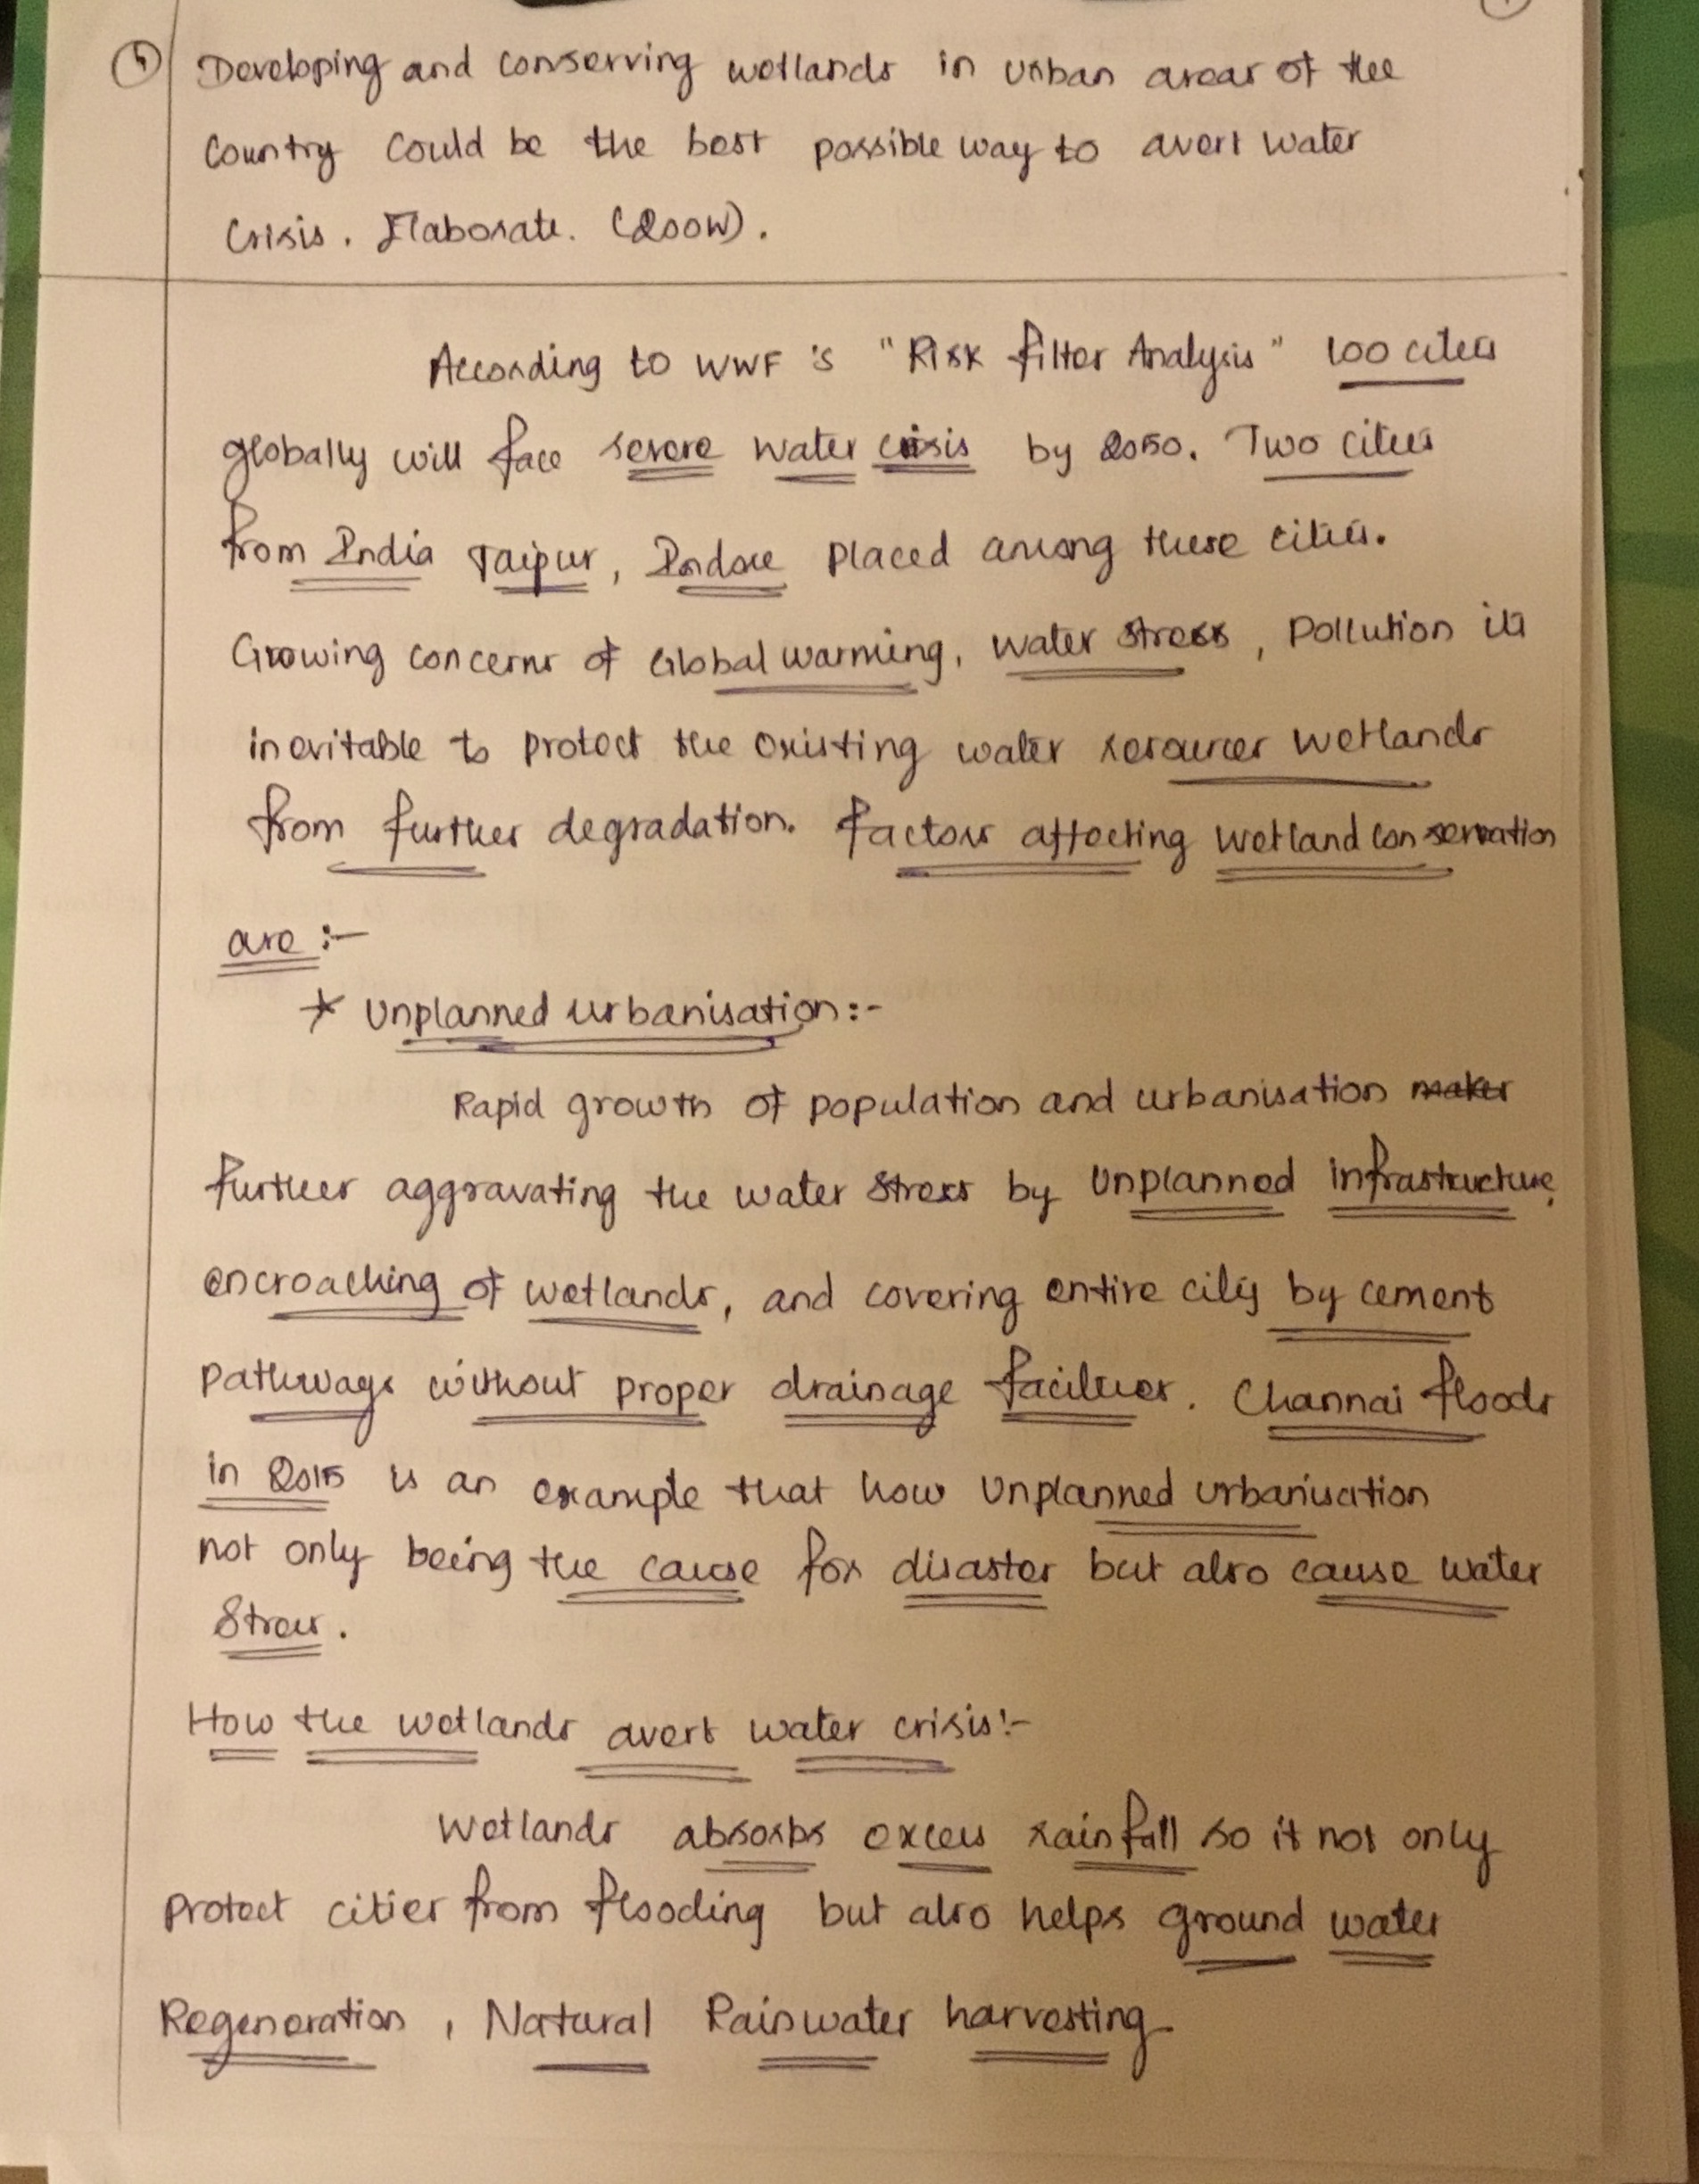 5 Developing and conserving wetlands in urban areas of the
Country Could be the best possible way to avert water
Crisis. Elaborate. (200W).
According to WWF's "Risk filter Analysis" 100 cities
globally will face severe water crisis by 2050. Two cities
from India Jaipur, Indore placed among these cities.
Growing concerns of Global warming, water stress, Pollution its
inevitable to protect the existing water resources wetlands
from further degradation. factors affecting wetland conservation
are :-
* Unplanned urbanisation:-
Rapid growth of population and urbanisation makes
further aggravating the water stress by Unplanned infrastructure,
encroaching of wetlands, and covering entire city by cement
pathways without proper drainage facilities. Channai floods
in 2015 is an example that how Unplanned urbanisation
not only being the cause for disaster but also cause water
Stress.
How the wetlands avert water crisis:-
Wetlands absorbs excess rainfall so it not only
Protect cities from flooding but also helps ground water
Regeneration, Natural Rainwater harvesting